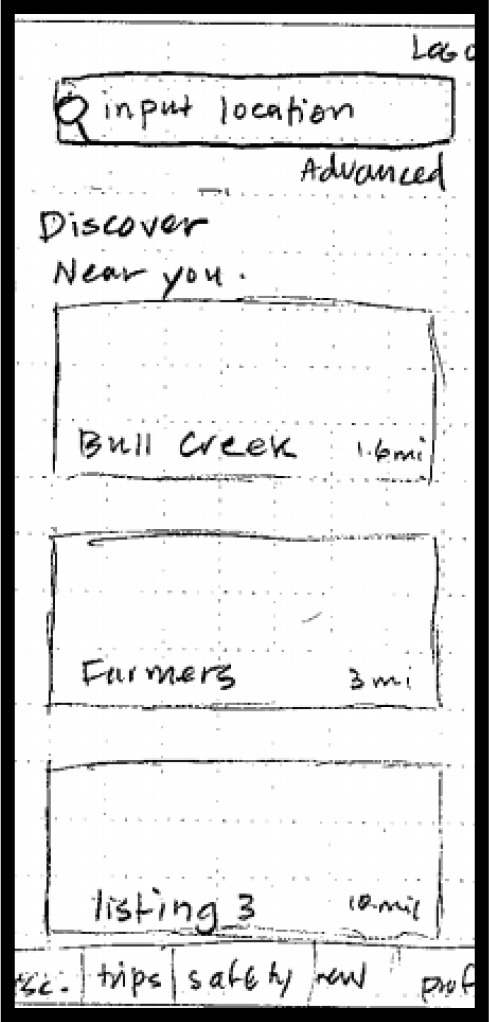 Log o
input location
Advanced
Discover
Near you.
Bull Creek 1.6mi
Farmers 3 mi
listing 3 10 mil
isc. trips safety prof